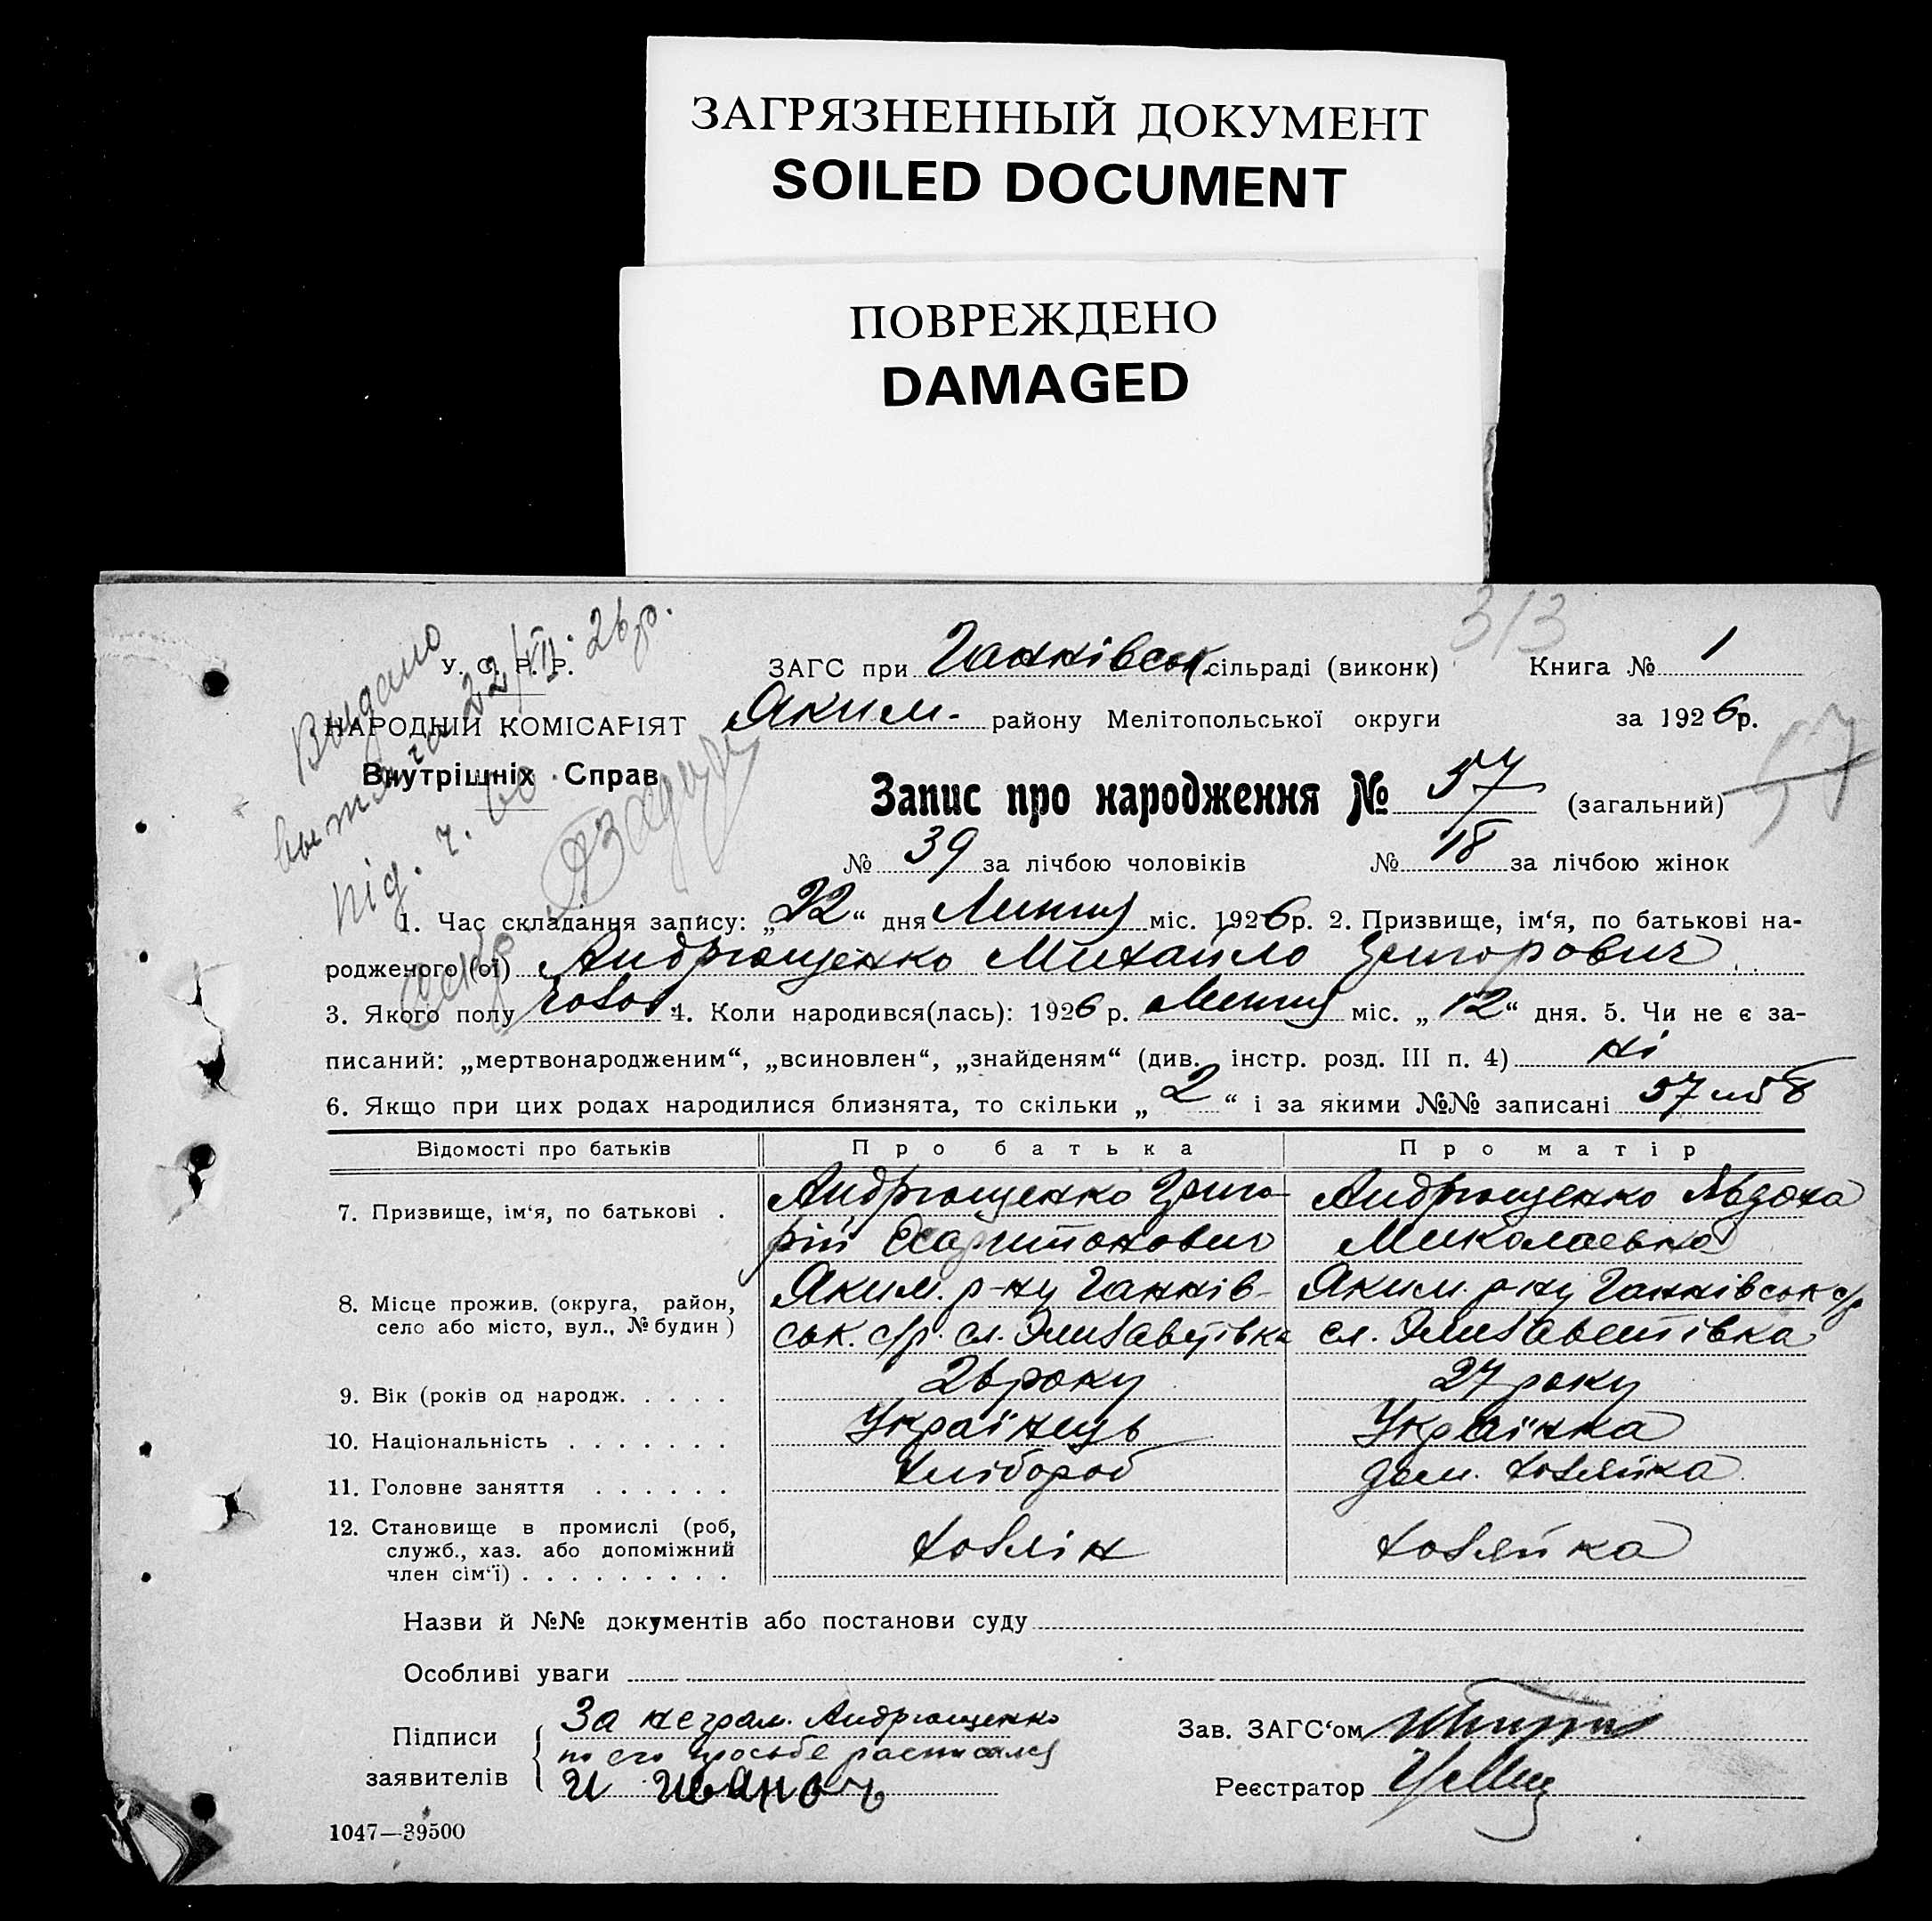 ЗАГРЯЗНЕННЫЙ ДОКУМЕНТ
SOILED DOCUMENT
ПОВРЕЖДЕНО
DAMAGED
313
Видано
витяга 22/VII. 26 р.
під. ч. 60
У. С. Р. Р.
НАРОДНІЙ КОМІСАРІЯТ
Внутрішніх Справ
ЗАГС при Ганнівськ сільраді (виконк) Книга № 1
Яким- району Мелітопольської округи за 1926 р.
Запис про народження № 57 (загальний)
57
№ 39 за лічбою чоловіків № 18 за лічбою жінок
1. Час складання запису: „22“ дня Липня міс. 1926 р. 2. Призвище, ім‘я, по батькові на-
родженого (ої) Андрющенко Михайло Григорович
3. Якого полу 4. Коли народився(лась): 1926 р. Липня міс. „12“ дня. 5. Чи не є за-
писаний: „мертвонародженим“, „всиновлен“, „знайденям“ (див. інстр. розд. III п. 4) ні
6. Якщо при цих родах народилися близнята, то скільки „2“ і за якими №№ записані 57 и 58
Відомості про батьків Про батька Про матір
7. Призвище, ім‘я, по батькові . Андрющенко Григо- Андрющенко Явдоха
рій Харитонович Миколаевна
8. Місце прожив. (округа, район, Яким. р-ну Ганнів- Яким. р-ну Ганнівськ с/р
село або місто, вул., № будин) ськ. с/р. сл. Элизаветівка сл. Элизаветівка
9. Вік (років од народж. . . . . 26 року 27 року
10. Національність . . . . . . . Українець Українка
11. Головне заняття . . . . . . хлібороб дом. хозяйка
12. Становище в промислі (роб, хозяін хозяйка
служб., хаз. або допоміжний
член сім‘ї) . . . . . . . . .
Назви й №№ документів або постанови суду
Особливі уваги
Підписи За неграм. Андрющенко
по его просьбе расписался
заявителів И Иванов
Зав. ЗАГС‘ом
Реєстратор
1047—39500